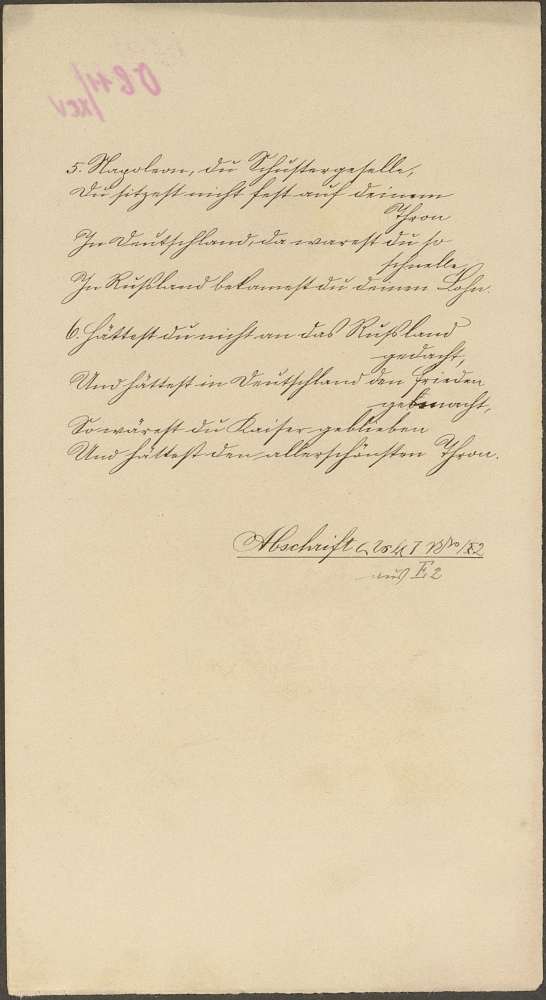 5. Napoleon, du Schustergeselle,
Du sitzest nicht fest auf deinem
Thron
In Deutschland, da warest du so
schnelle
In Rußland bekamest du deinen Lohn.
6. Hättest du nicht an das Rußland
gedacht,
Und hättest in Deutschland den Frieden
gemacht,
So wärest du Kaiser geblieben
Und hättest den allerschönsten Thron.
Abschrift
aus E2